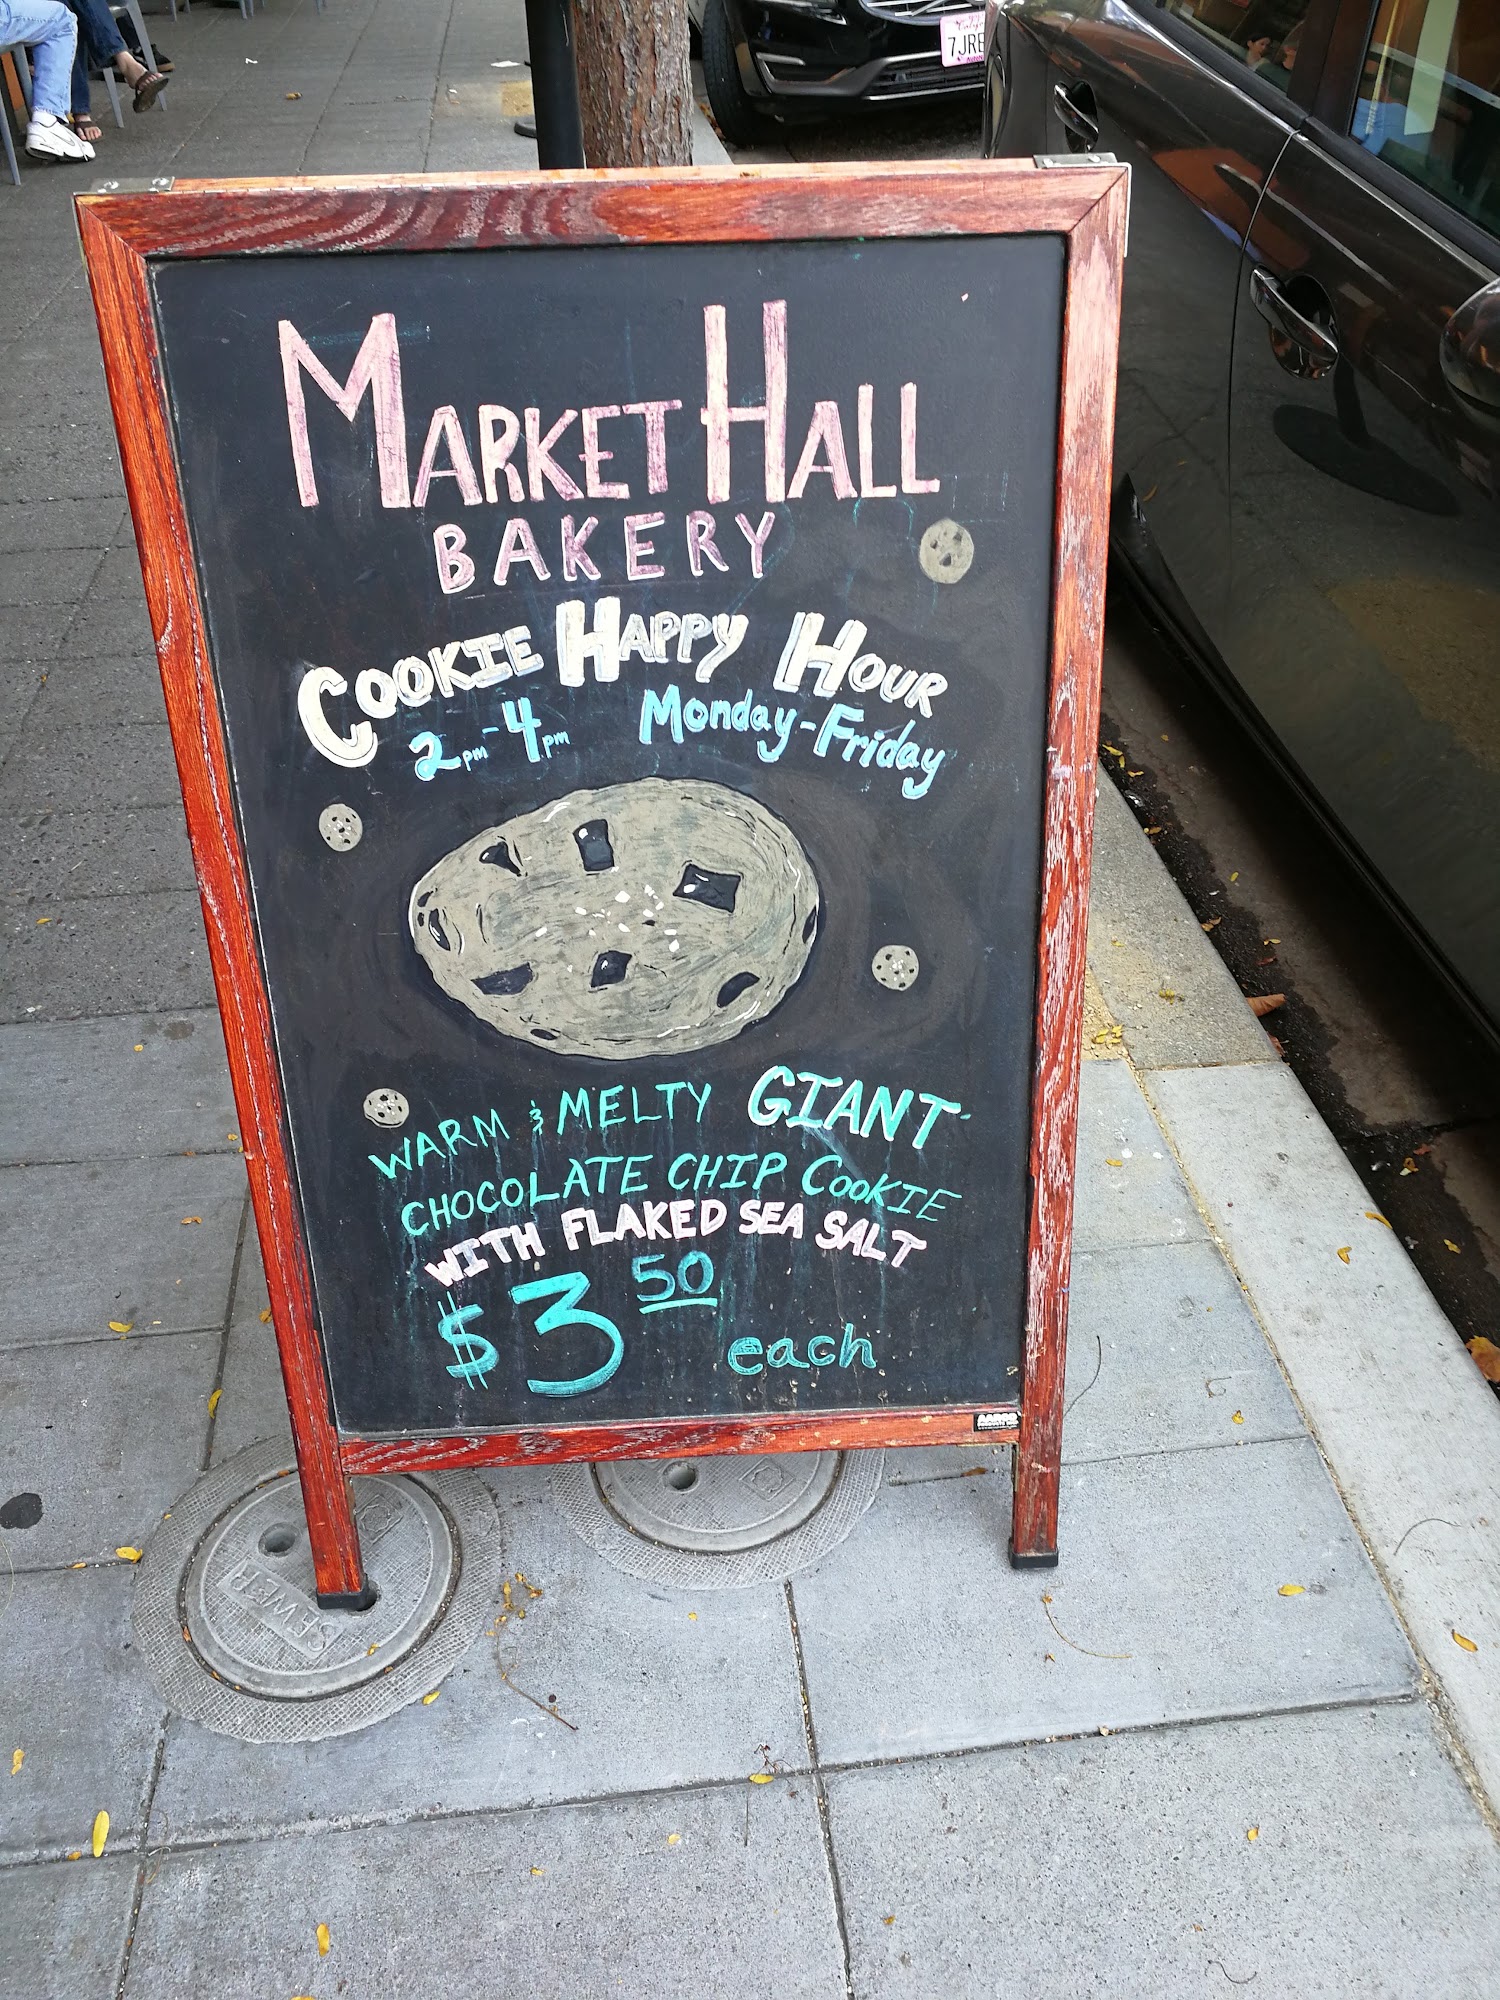 MARKET HALL
BAKERY
COOKIE HAPPY HOUR
2pm-4pm Monday-Friday
WARM & MELTY GIANT
CHOCOLATE CHIP COOKIE
WITH FLAKED SEA SALT
$3 50 each
SEWER
7JRE